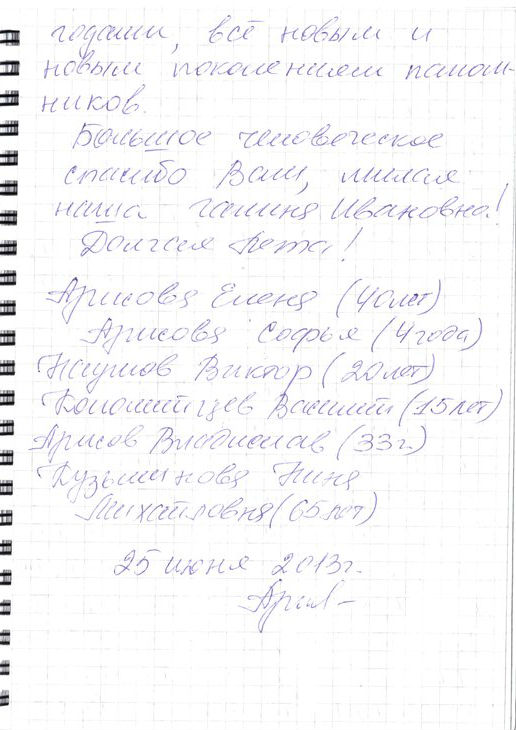 годами, всё новым и
новым поколениям палом-
ников.
Большое человеческое
спасибо Вам, милая
наша Галина Ивановна!
Долгая Лета!
Арисова Елена (40лет)
Арисова Софья (4 года)
Наумов Виктор (20лет)
Коломитцев Василий (15 лет)
Арисов Владислав (33г.)
Кузьминова Нина
Михайловна (65лет)
25 июня 2013г.